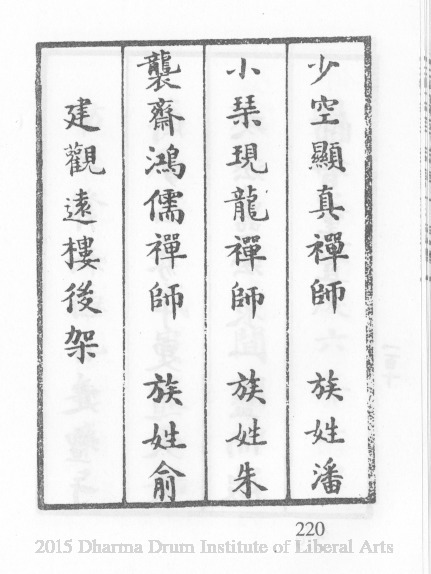 少空顯真禪師　族姓潘
小琹現龍禪師　族姓朱
襲齋鴻儒禪師　族姓俞
建觀遠樓後架
220
2015 Dharma Drum Institute of Liberal Arts